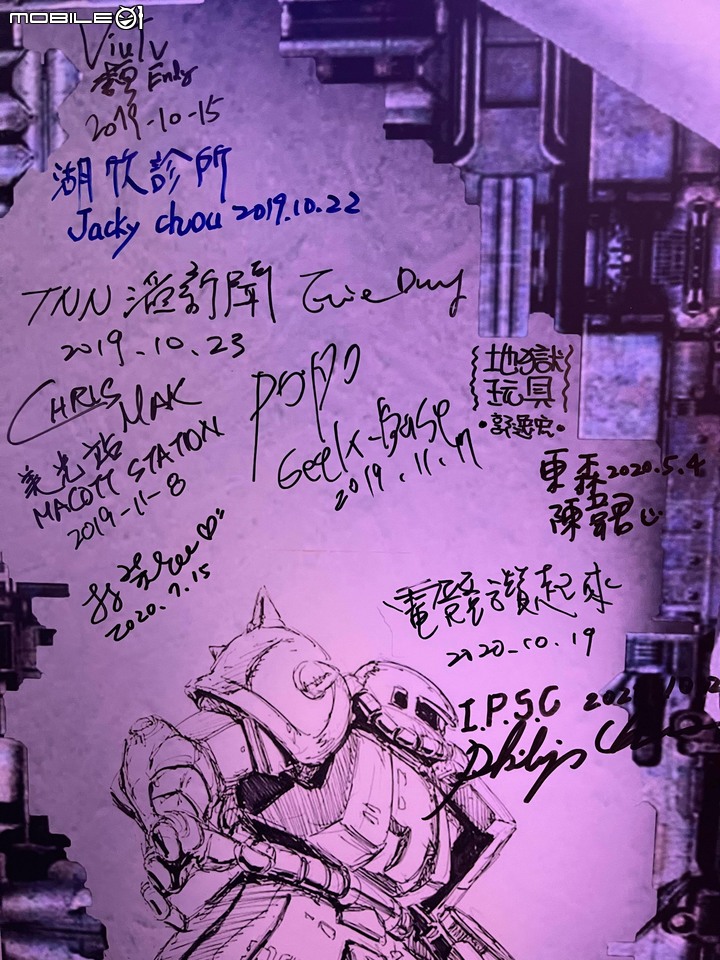 MOBILE01
Viulv
Endy
2019-10-15
湖欣診所
Jacky chou 2019.10.22
TNN 滔新聞
2019.10.23
CHRIS MAK
美光站
MACOTT STATION
2019-11-8
POPO
Geek-Base
2019.11.11
地獄
玩具
東森2020.5.4
陳
2020.7.15
電競讚起來
2020.10.19
I.P.S.C